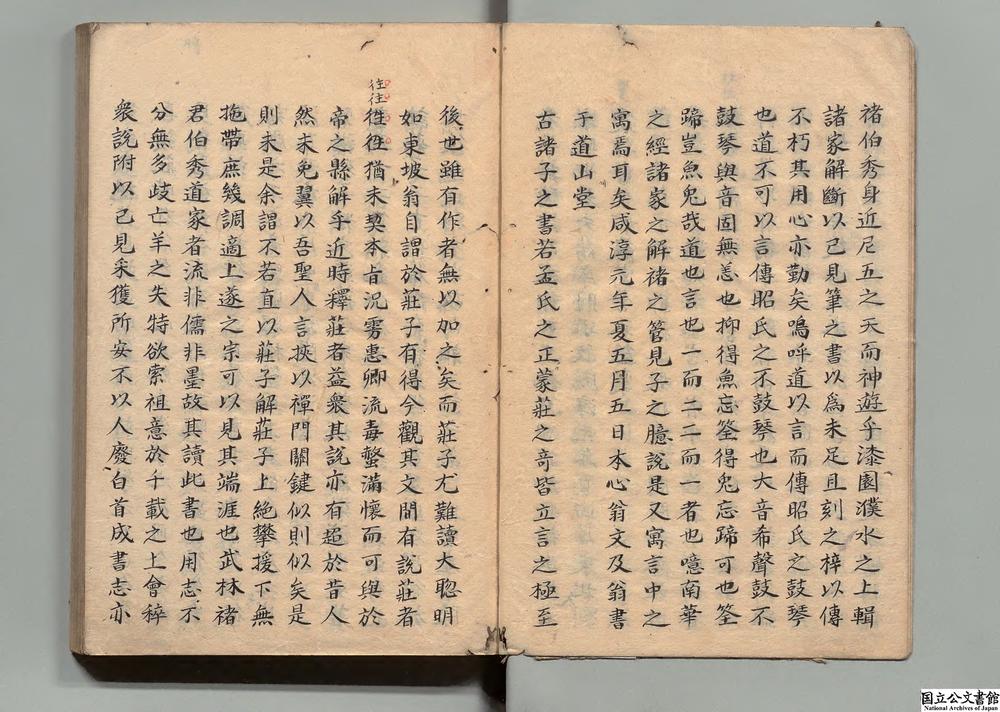 褚伯秀身近尼五之天而神遊乎漆園濮水之上輯
諸家解斷以己見筆之書以為未足且刻之梓以傳
不朽其用心亦勤矣嗚呼道以言而傳昭氏之鼓琴
也道不可以言傳昭氏之不鼓琴也大音希聲鼓不
鼓琴與音固無恙也抑得魚忘筌得兎忘蹄可也筌
蹄豈魚兎哉道也言也一而二二而一者也噫南華
之經諸家之解褚之管見子之臆說是又寓言中之
寓焉耳矣咸淳元年夏五月五日本心翁文及翁書
于道山堂
古諸子之書若孟氏之正蒙莊之奇皆立言之極至
後世雖有作者無以加之矣而莊子尤難讀大聰明
如東坡翁自謂於莊子有得今觀其文間有說莊者
往往
徃徃猶未契本旨況雱惠卿流毒螫滿懷而可與於
帝之縣解乎近時釋莊者益衆其說亦有超於昔人
然未免翼以吾聖人言挾以禪門關鍵似則似矣是
則未是余謂不若直以莊子解莊子上絶攀援下無
拖帶庶幾調適上遂之宗可以見其端涯也武林褚
君伯秀道家者流非儒非墨故其讀此書也用志不
分無多歧亡羊之失特欲索祖意於千載之上會稡
衆說附以己見采獲所安不以人廢白首成書志亦
国立公文書館
National Archives of Japan